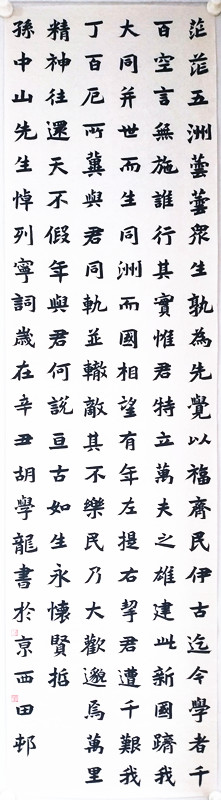 茫茫五洲蕓蕓衆生孰為先覺以福齊民伊古迄今學者千
百空言無施誰行其實惟君特立萬夫之雄建此新國躋我
大同并世而生同洲而國相望有年左提右挈君遭千艱我
丁百厄所冀與君同軌並轍敵其不樂民乃大歡邈焉萬里
精神往還天不假年與君何說亘古如生永懷賢
孫中山先生悼列寧詞歲在辛丑胡學龍書於京西田邨